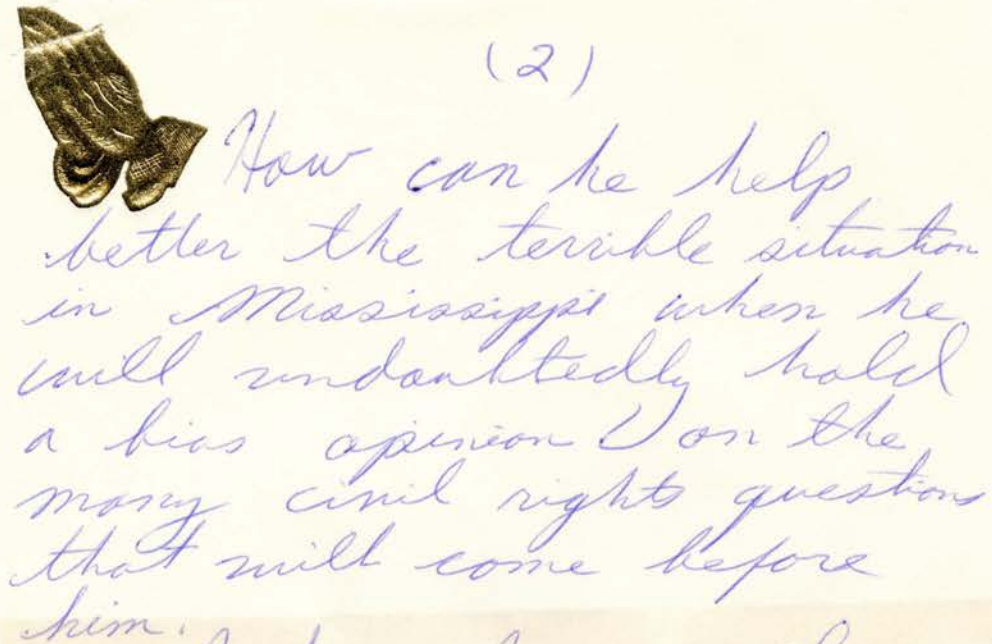 (2)
How can he help
better the terrible situation
in Mississippi when he
will undoubtedly hold
a bias opinion on the
many civil rights questions
that will come before
him.